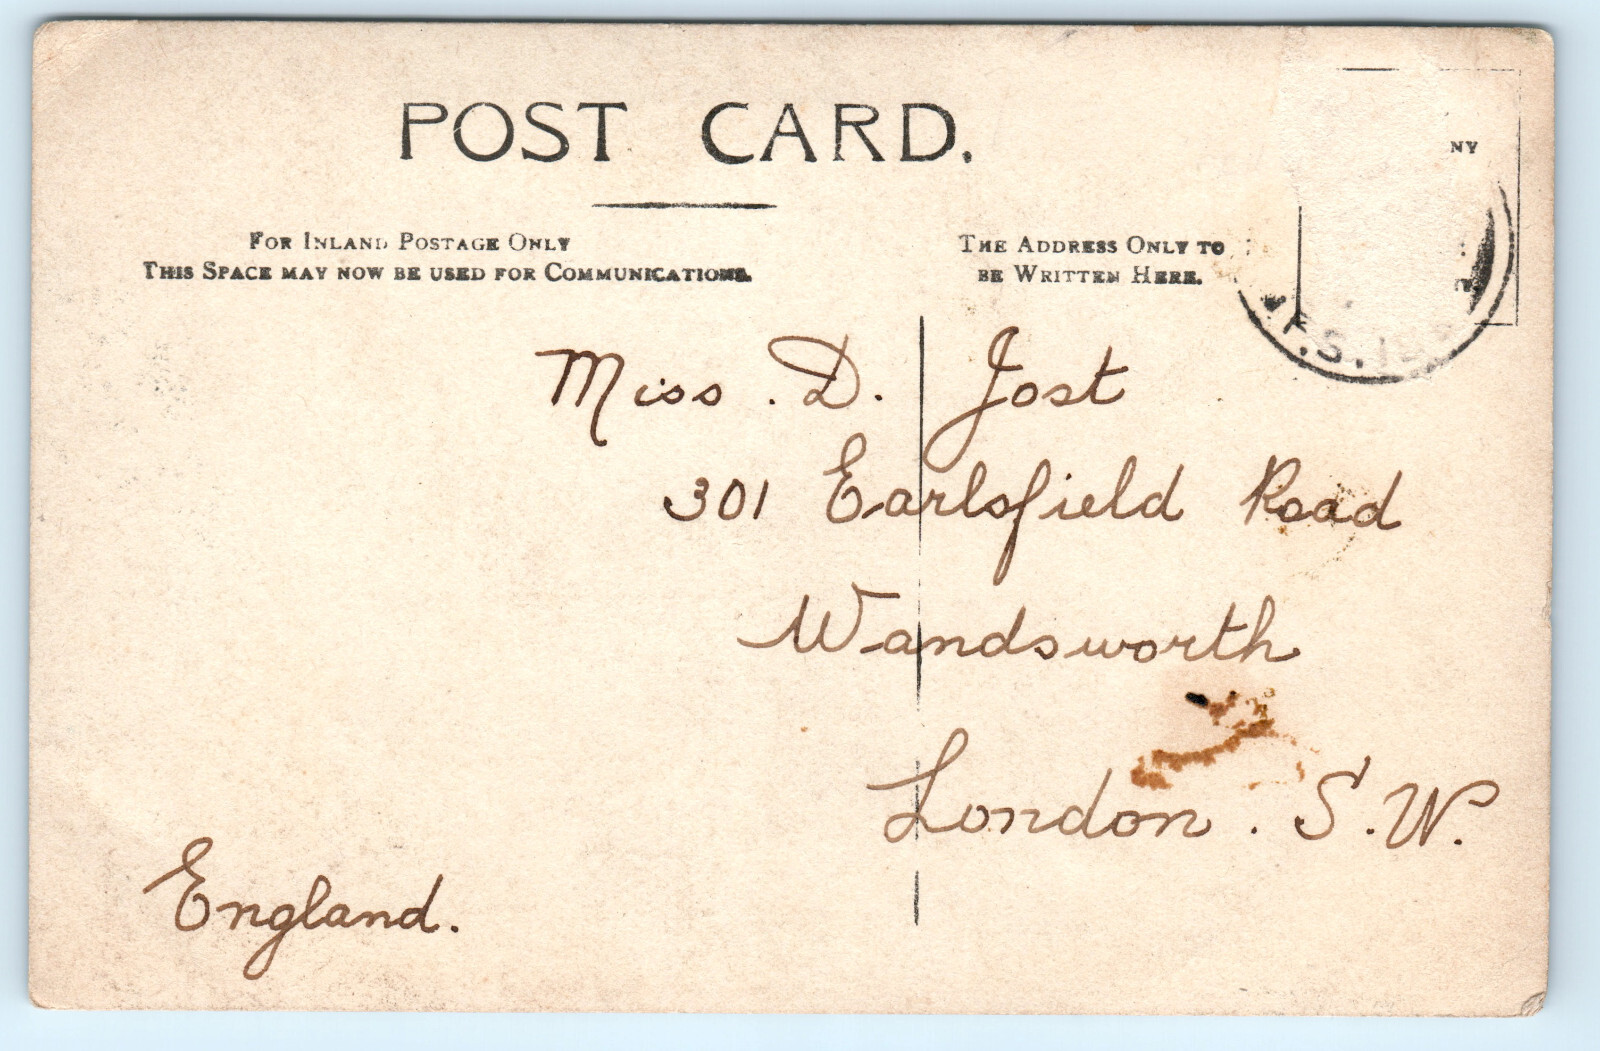 POST CARD.
NY
FOR INLAND POSTAGE ONLY
THIS SPACE MAY NOW BE USED FOR COMMUNICATIONS.
THE ADDRESS ONLY TO
BE WRITTEN HERE.
Miss . D. Jost
301 Earlsfield Road
Wandsworth
London . S. W.
England.